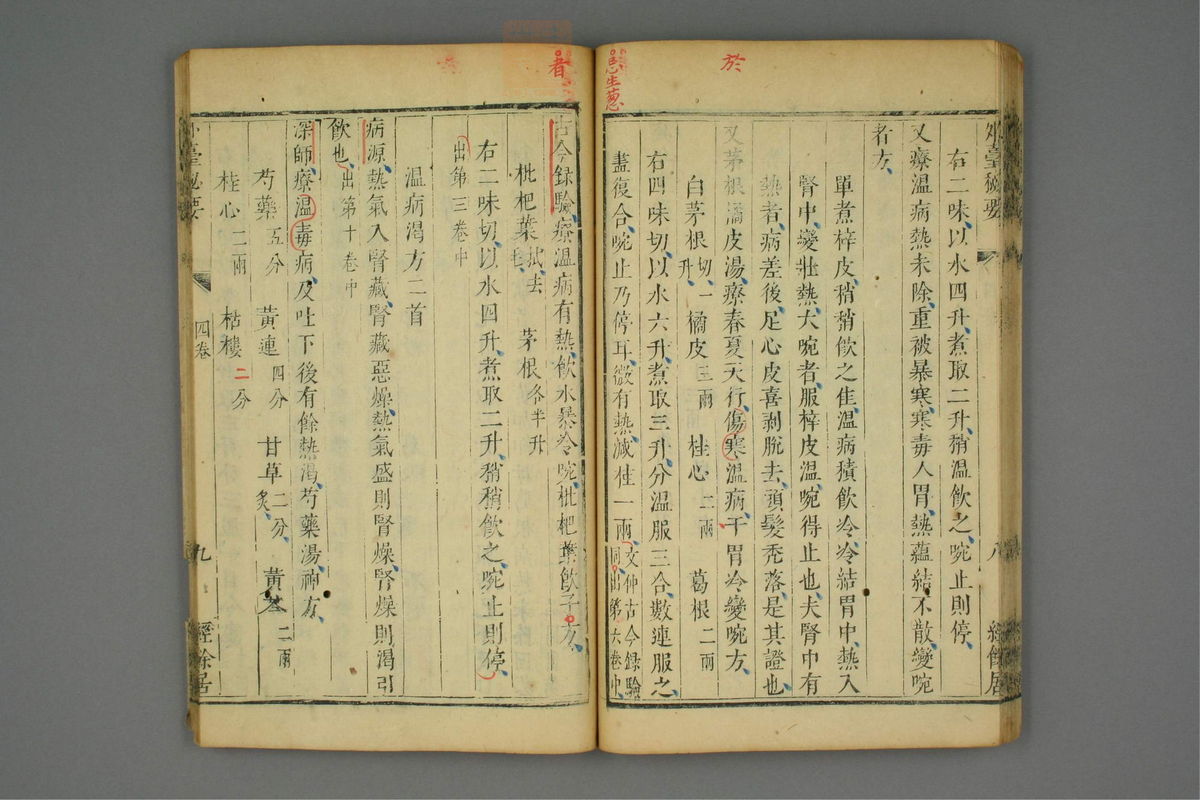 於
葱
外臺秘要
八
經餘居
右二味以水四升煮取二升稍溫飲之啘止則停
又療溫病熱未除重被暴寒寒毒入胃熱蘊結不散變啘
者方
單煮梓皮稍稍飲之佳溫病積飲冷冷結胃中熱入
腎中變壯熱大啘者服梓皮溫啘得止也夫腎中有
熱者病差後足心皮喜剥脫去頭髮禿落是其證也
又茅根橘皮湯療春夏天行傷寒溫病干胃冷變啘方
白茅根切一升 橘皮三兩 桂心二兩 葛根二兩
右四味切以水六升煮取三升分溫服三合數連服之
盡復合啘止乃停耳微有熱減桂一兩文仲古今錄驗同出第六卷中
者
古今録驗療溫病有熱飲水暴冷啘枇杷葉飲子方
枇杷葉拭去毛 茅根各半升
右二味切以水四升煮取二升稍稍飲之啘止則停
出第三卷中
溫病渴方二首
病源熱氣入腎藏腎藏惡燥熱氣盛則腎燥腎燥則渴引
飲也出第十卷中
深師療溫毒病及吐下後有餘熱渴芍藥湯神方
芍藥五分 黃連四分 甘草二分炙 黃芩二兩
桂心二兩 栝樓二分
外臺秘要
四卷
九
經餘居